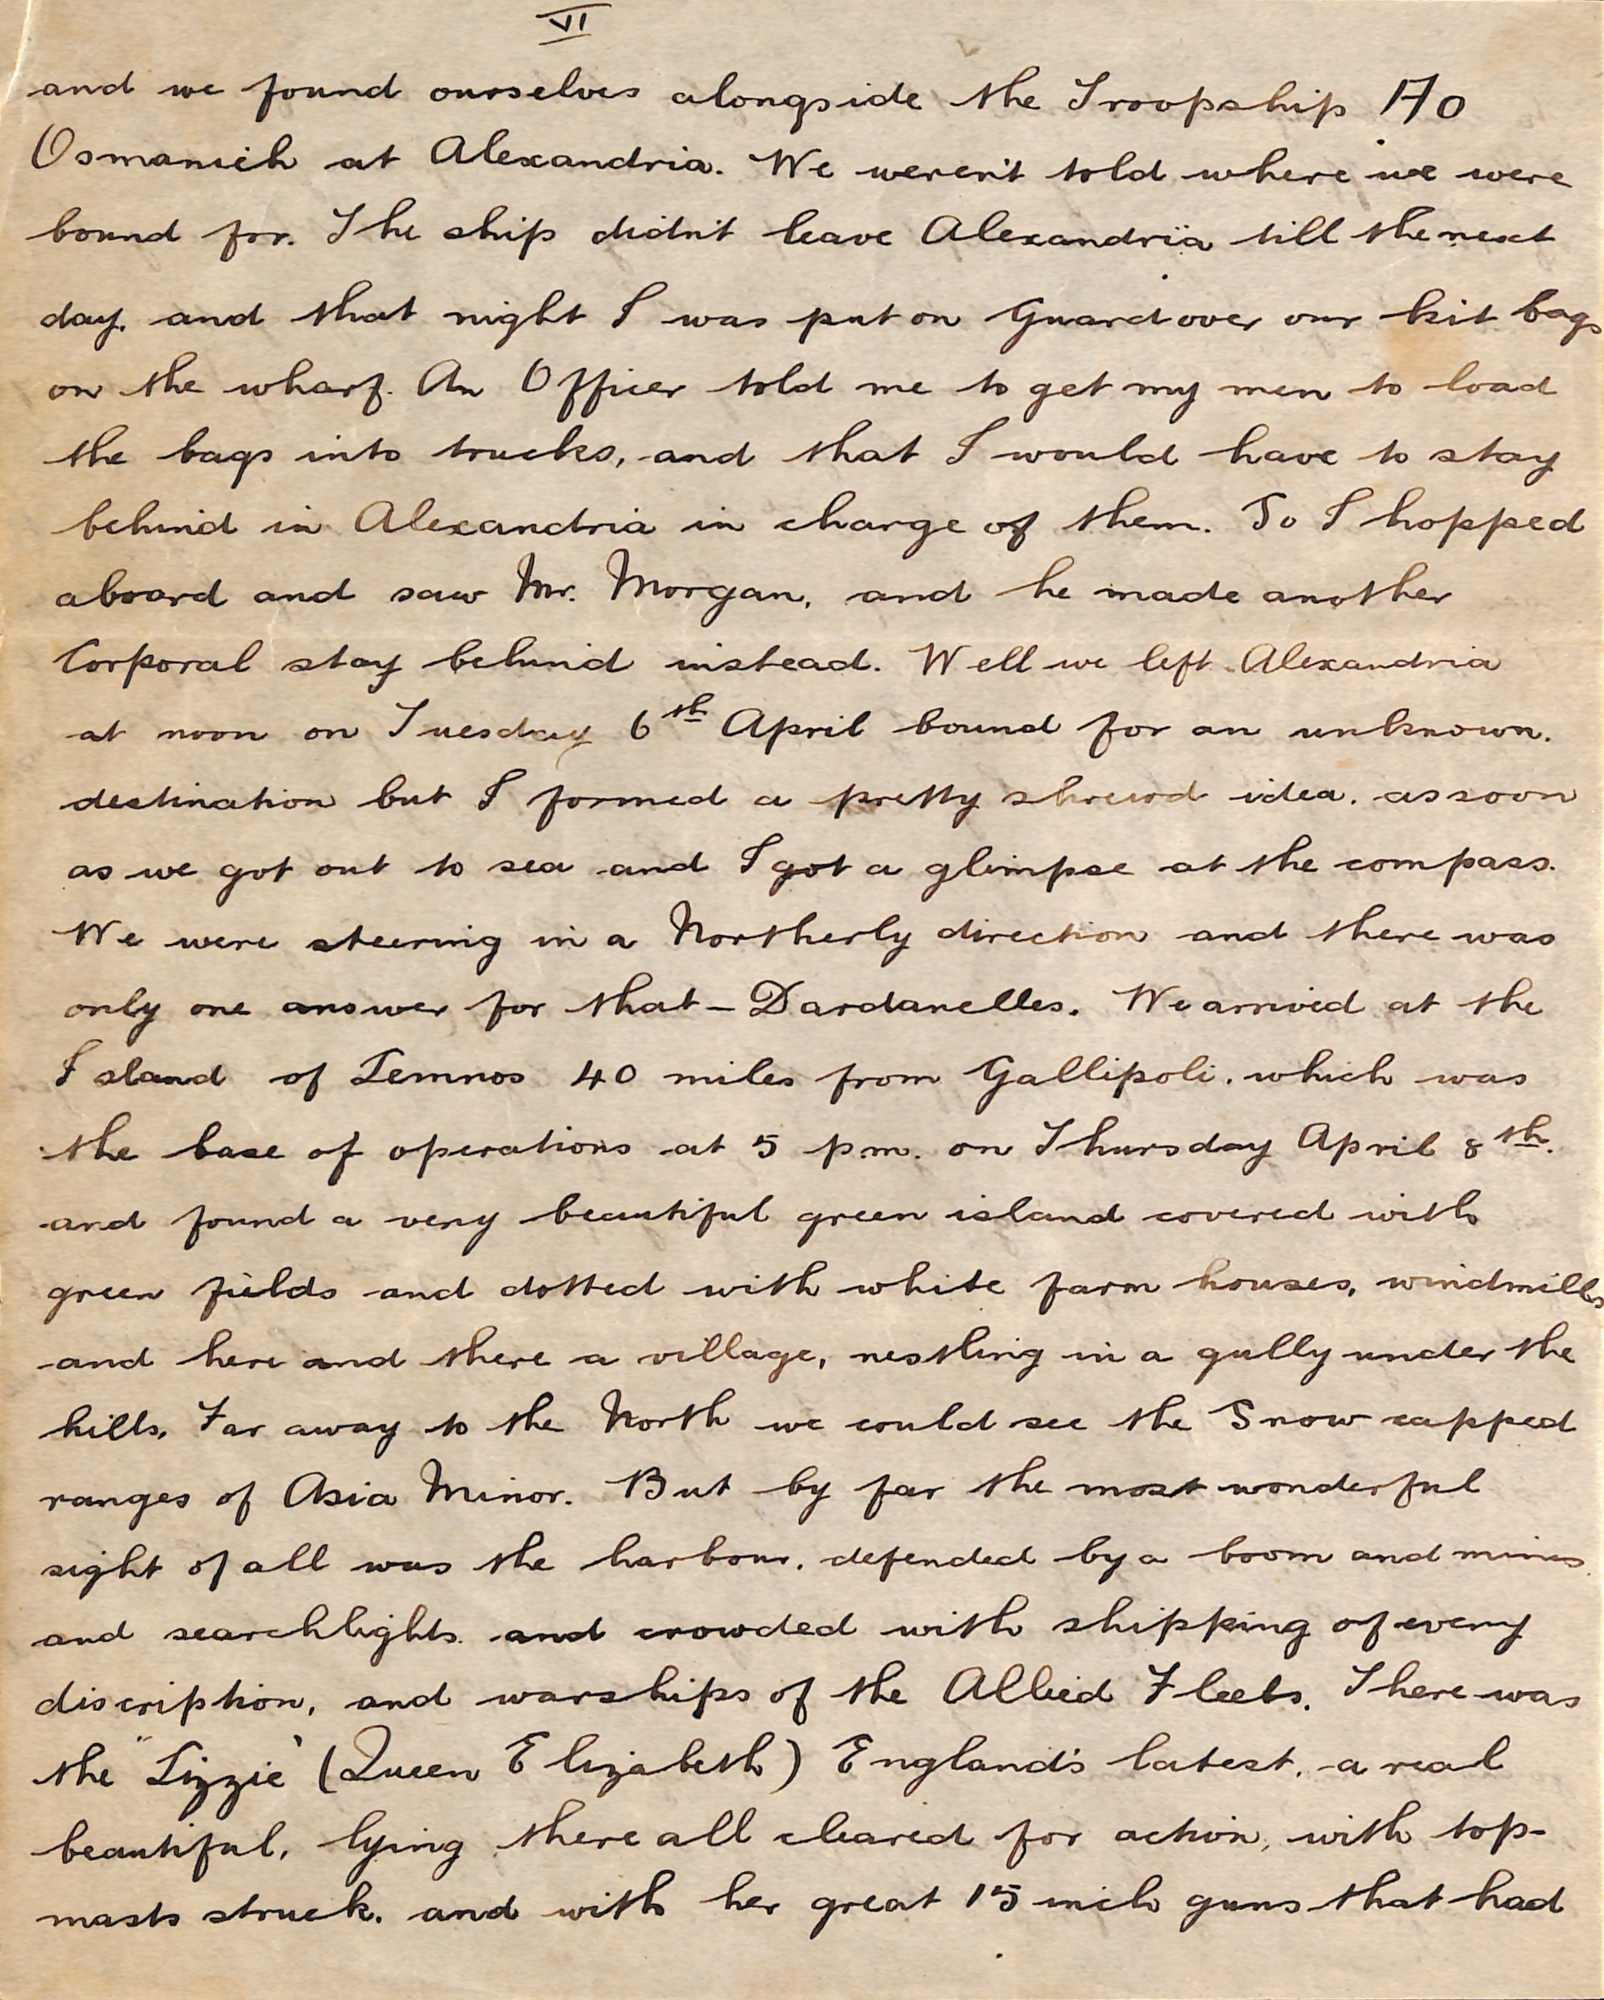 VI
and we found ourselves alongside the Troopship A70
Osmanieh at Alexandria. We weren't told where we were
bound for. The ship didn't leave Alexandria till the next
day. and that night I was put on Guard over our kit bags
on the wharf. An Officer told me to get my men to load
the bags into trucks, and that I would have to stay
behind in Alexandria in charge of them. So I hopped
aboard and saw Mr. Morgan, and he made another
Corporal stay behind instead. Well we left Alexandria
at noon on Tuesday 6th April bound for an unknown.
destination but I formed a pretty shrewd idea. as soon
as we got out to sea and I got a glimpse at the compass.
We were steering in a Northerly direction and there was
only one answer for that – Dardanelles. We arrived at the
Island of Lemnos 40 miles from Gallipoli. which was
the base of operations at 5 p.m. on Thursday April 8th.
and found a very beautiful green island covered with
green fields and dotted with white farm houses, windmills
and here and there a village, nestling in a gully under the
hills. Far away to the North we could see the Snow capped
ranges of Asia Minor. But by far the most wonderful
sight of all was the harbour. defended by a boom and mines
and searchlights. and crowded with shipping of every
discription, and warships of the Allied Fleets. There was
the "Lizzie" (Queen Elizabeth) England's latest. a real
beautiful, lying there all cleared for action, with top-
masts struck. and with her great 15 inch guns that had